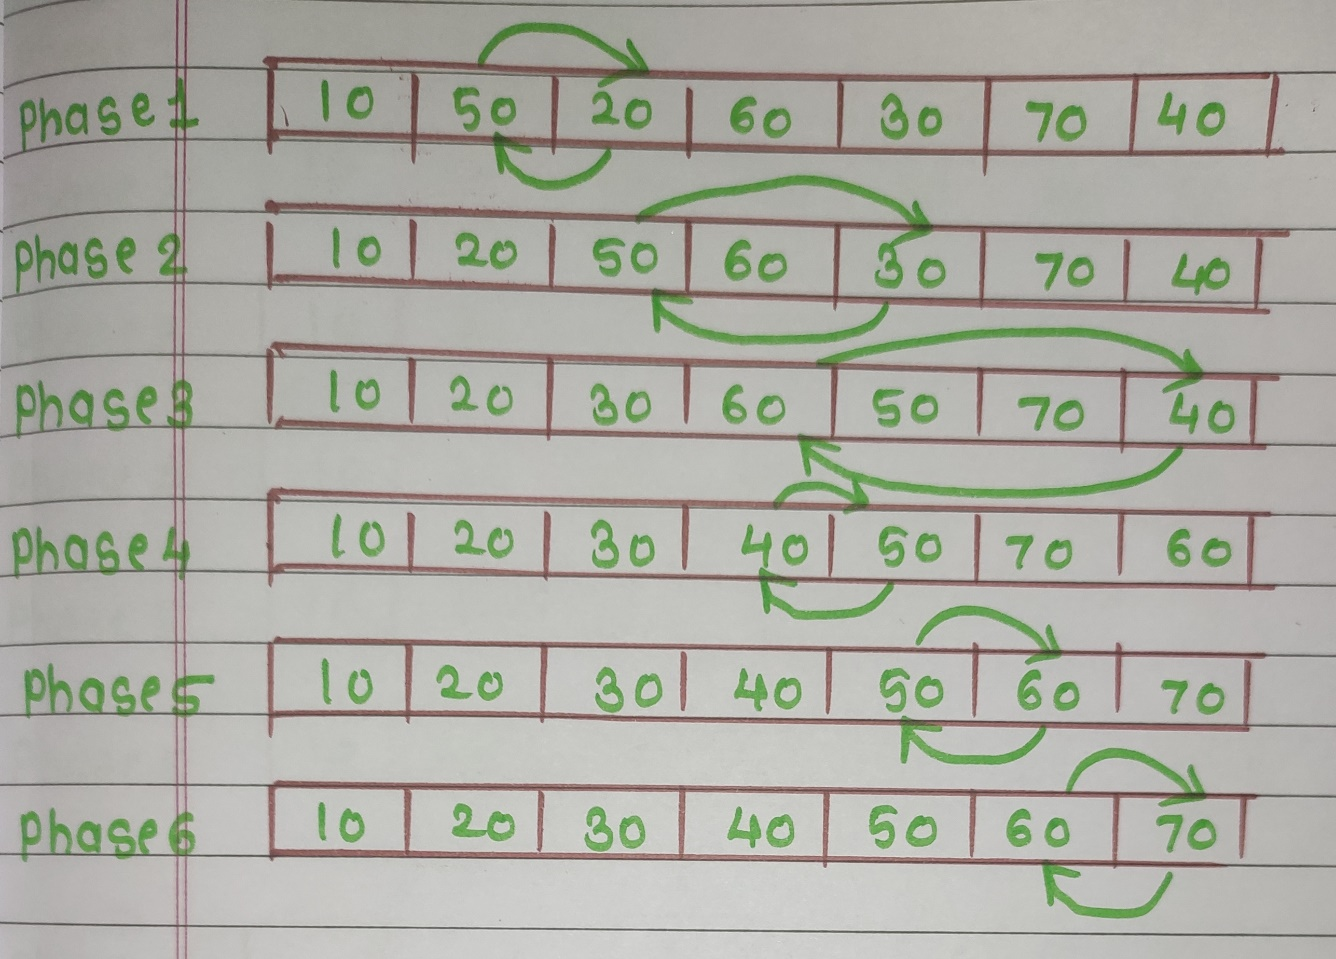 Phase 1 10 50 20 60 30 70 40
Phase 2 10 20 50 60 30 70 40
Phase 3 10 20 30 60 50 70 40
Phase 4 10 20 30 40 50 70 60
Phase 5 10 20 30 40 50 60 70
Phase 6 10 20 30 40 50 60 70